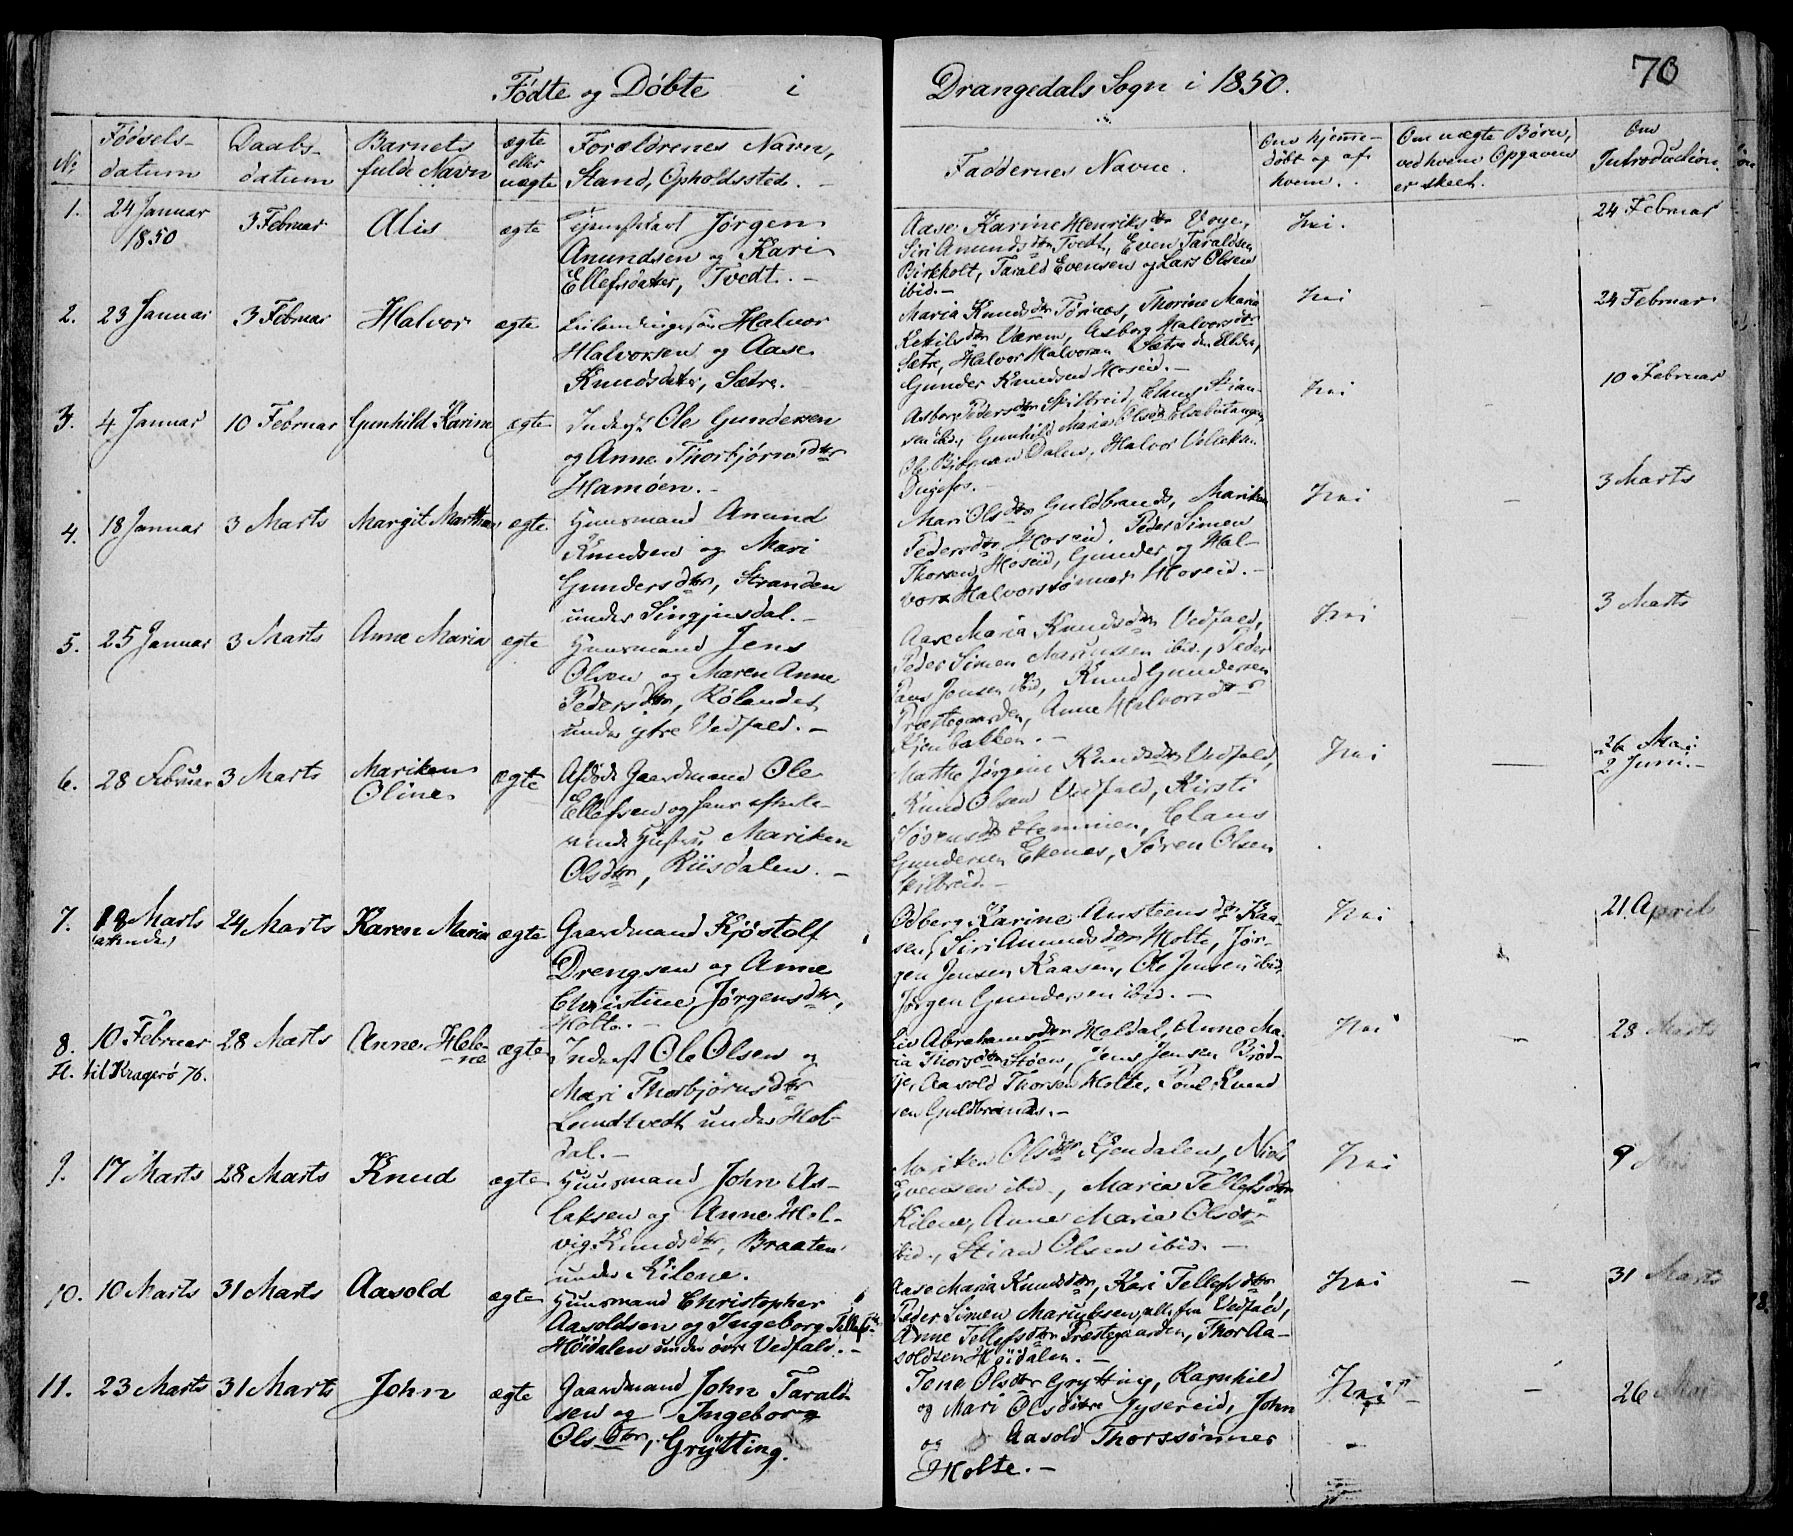 70
Fødte og Døbte i Drangedals Sogn i 1850.
No Fødsels-datum Daabs-datum Barnets fulde Navn ægte eller uægte Forældrenes Navn, Stand, Opholdssted. Faddernes Navne. Om hjemme-døbt og af hvem. Om uægte Børn, ved hvem Opgaven er skeet. Om Introduction.
1. 24 Januar 1850 3 Februar Alis ægte
Jørgen
Anundsen og Kari
Ellefsdatter, Tvedt. -
Aase Karine Henriksdtr Voje,
Siri Anundsdtr Tvedt, Even Taraldsen
Birkholt, Tarald Evensen og Lars Olsen
ibid. -
Nei. 24 Februar
2. 23 Januar 3 Februar Halvor ægte
Halvor
Halvorsen og Aase
Knudsdatter, Sætre.
Maria Knudsdtr Törnes, Thorine Maria
Ketilsdtr Værem, Asborg Halvorsdtr
Sætre, Halvor Halvorsen Sætre den Eldre,
Gunder Knudsen Hoseid. -
Nei 24 Februar
3. 4 Januar 10 Februar Gunhild Karine ægte
Inderst Ole Gundersen
og Anne Thorbjørnsdtr
Hamøen. -
Asborg Pedersdtr Skilbreid, Claus Stian-
sen ibid, Gunhild Maria Olsdtr
Dalen, Halvor
Nei 10 Februar
4. 18 Januar 3 Marts Margit Marthea ægte
Huusmand Anund
Knudsen og Mari
Gundersdtr, Stranden
under Singjusdal. -
Mari Olsdtr Guldbrands, Mariken
Pedersdtr Hoseid, Peder Simen
Thorsen Hoseid, Gunder og Hal-
vor Halvorssønner Hoseid. -
Nei 3 Marts
5. 25 Januar 3 Marts Anne Maria ægte
Huusmand Jens
Olsen og Maren Anne
Pedersdtr, Rølandet
under ytre Vedfald. -
Aase Maria Knudsdtr Vedfald,
Peder Simen Mariussen ibid., Peder
Jensen ibid, Knud Gundersen
Præstegaarden, Anne Halvorsdtr
Nei 3 Marts
6. 28 Februar 3 Marts Mariken Oline ægte
Afdøde Gaardmand Ole
Ellefsen og hans efterle-
vende Hustru Mariken
Olsdtr, Riisdalen. -
Marthe Jørgine Knudsdtr Vedfald,
Knud Olsen Vedfald, Kirsti
Claus
Gundersen Ekenes, Sören Olsen
Skilbreid. -
Nei 26 Mai 2 Juni. -
7. 12 Marts 24 Marts Karen Maria ægte
Gaardmand Kjöstolf
Drengsen og Anne
Christine Jørgensdtr,
Holte. -
Odberg Karine Austeensdtr Kaa-
sen, Siri Anundsdtr Holte, Jør-
gen Jensen Kaasen, Ole Jensen ibid,
Jørgen Gundersen ibid. -
Nei 21 April
8. 10 Februar 28 Marts Anne Helene ægte
til Kragerö 76.
Inderst Ole Olsen og
Mari Thorbjörnsdtr
Lundtvedt under Hol-
dal. -
Liv Abrahamsdtr Holdal, Anne Ma-
ria Thorsdtr Støen, Jens Jensen
Aasold Thorsen Holte, Poul Knud
sen Guldbrands. -
Nei 28 Marts
9. 17 Marts 28 Marts Knud ægte
Huusmand John As-
laksen og Anne Hel-
vig Knudsdtr, Braaten
under Kilene.
Mariken Olsdtr Kjendalen, Niels
Evensen ibid., Maria Tellefsdtr
Kilene, Anne Maria Olsdtr
ibid., Stian Olsen ibid. -
Nei 9 Mai
10. 10 Marts 31 Marts Aasold ægte
Huusmand Christopher
Aasoldsen og Ingeborg Tellefsdtr
Höidalen under övre Vedfald. -
Aase Maria Knudsdtr, Kari Tellefsdtr,
Peder Simen Mariussen, alle fra Vedfald,
Anne Tellefsdtr Præstegaarden, Thor Aa-
soldsen Höidalen. -
Nei 31 Marts
11. 23 Marts 31 Marts John ægte
Gaardmand John Tarald-
sen og Ingeborg
Olsdtr, Grytting.
Tone Olsdtr Grytting, Ragnhild
og Mari Olsdøtre Jysereid, John
og Aasold Thorssønner
Holte. -
Nei 26 Mai